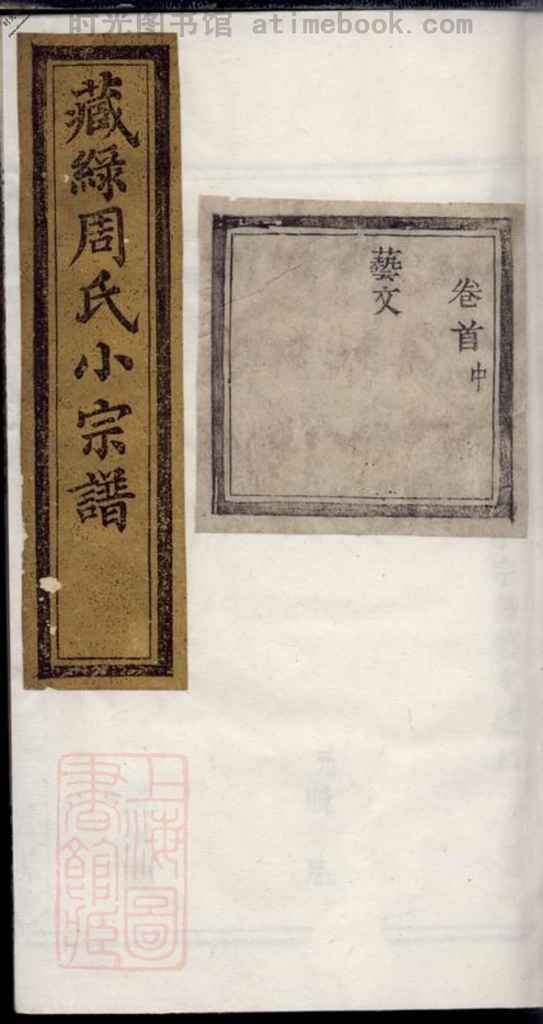 时光图书馆 www.atimebook.com
藏綠周氏小宗譜
卷首中
藝文
上海圖
書館藏